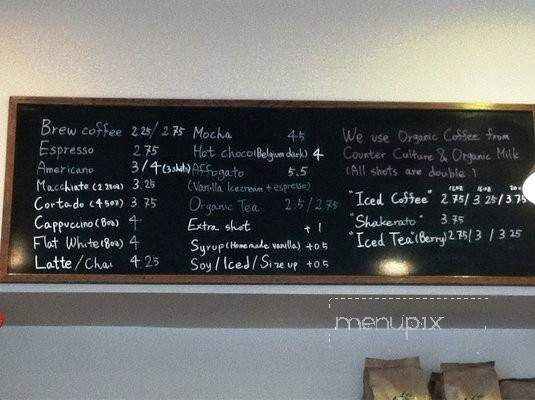 Brew coffee 2.25/2.75
Espresso 2.75
Americano 3/4 (3 shots)
Macchiato (2.25oz) 3.25
Cortado (4.5oz) 3.75
Cappuccino (8oz) 4
Flat White (8oz) 4
Latte/Chai 4.25
Mocha 4.5
Hot choco (Belgium dark) 4
Affogato 5.5
(Vanilla Icecream + espresso)
Organic Tea 2.5/2.75
Extra shot +1
Syrup (Homemade vanilla) +0.5
Soy/Iced/Size up +0.5
We use Organic Coffee from
Counter Culture & Organic Milk
(All shots are double)
12oz 16oz
"Iced Coffee" 2.75/3.25/3.75
"Shakerato" 3.75
"Iced Tea" (Berry) 2.75/3/3.25
menupix